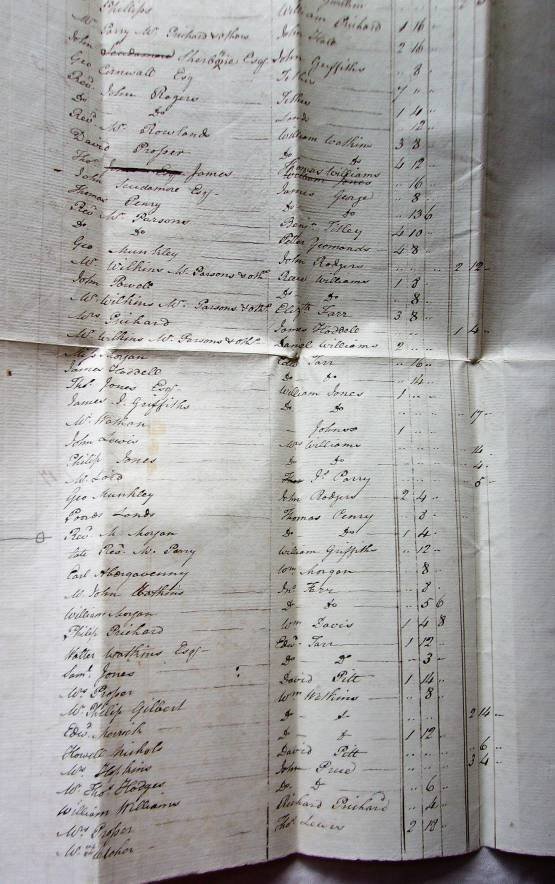 Phillips William Prichard 1 16
Mr Parry Mr Prichard & others John 2 16
John Sherborne Esq John Griffiths 8
Geo Cornwall Esq Tithes 7
Revd John Rogers Tithes 1 4
Do Do Lands 12
Revd Mr Rowland William Watkins 3 8
David Prosper Do Do 4 12
Thos James Thomas Williams 16
John Scudamore Esq James George 8
Thomas Penry Do Do 13 6
Revd Mr Parsons Benjn Tilley 4 10
Do Do Peter Yeomans 4 8
Geo Munkley John Rodgers 2 12
Mr Wilkins Mr Parsons & oths Rees Williams 1 8
John Powell Do Do 8
Mr Wilkins Mr Parsons & oths Elizth Farr 3 8
Mrs Prichard James Haddell 1 4
Mr Wilkins Mr Parsons & oths Daniel Williams 2
Miss Morgan Edwd Farr 16
James Haddell Do Do 14
Thos Jones Esqr William Jones 1
James J. Griffiths Do Do 17
Mr Wathan Johnso 1
John Lewis Mrs Williams 14
Philip Jones Do Do 4
Mr Lord Js Parry 5
Geo Munkley John Rodgers 2 4
Ponds Lands Thomas Penry 8
Revd Mr Morgan Do Do 1 4
late Revd Mr Perry William Griffiths 12
Earl Abergavenny Wm Morgan 8
Mr John Hopkins Jno Farr 8
William Morgan Do Do 5 6
Philip Prichard Wm Davis 1 4 8
Walter Watkins Esqr Edwd Farr 1 12
Saml Jones Do Do 3
Mrs Prosper David Pitt 1 14
Mr Philip Gilbert Wm Watkins 8
Edwd Do Do 2 14
Howell Nichols Do Do 1 12
Mrs Hopkins David Pitt 6
Mr Thos Hodges John 3 4
William Williams Do Do 6
Mrs Prosper Richard Prichard 4
Mr Thos Lewis 2 18